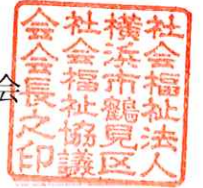 社会福祉法人
横浜市鶴見区
社会福祉協議
会会長之印
会